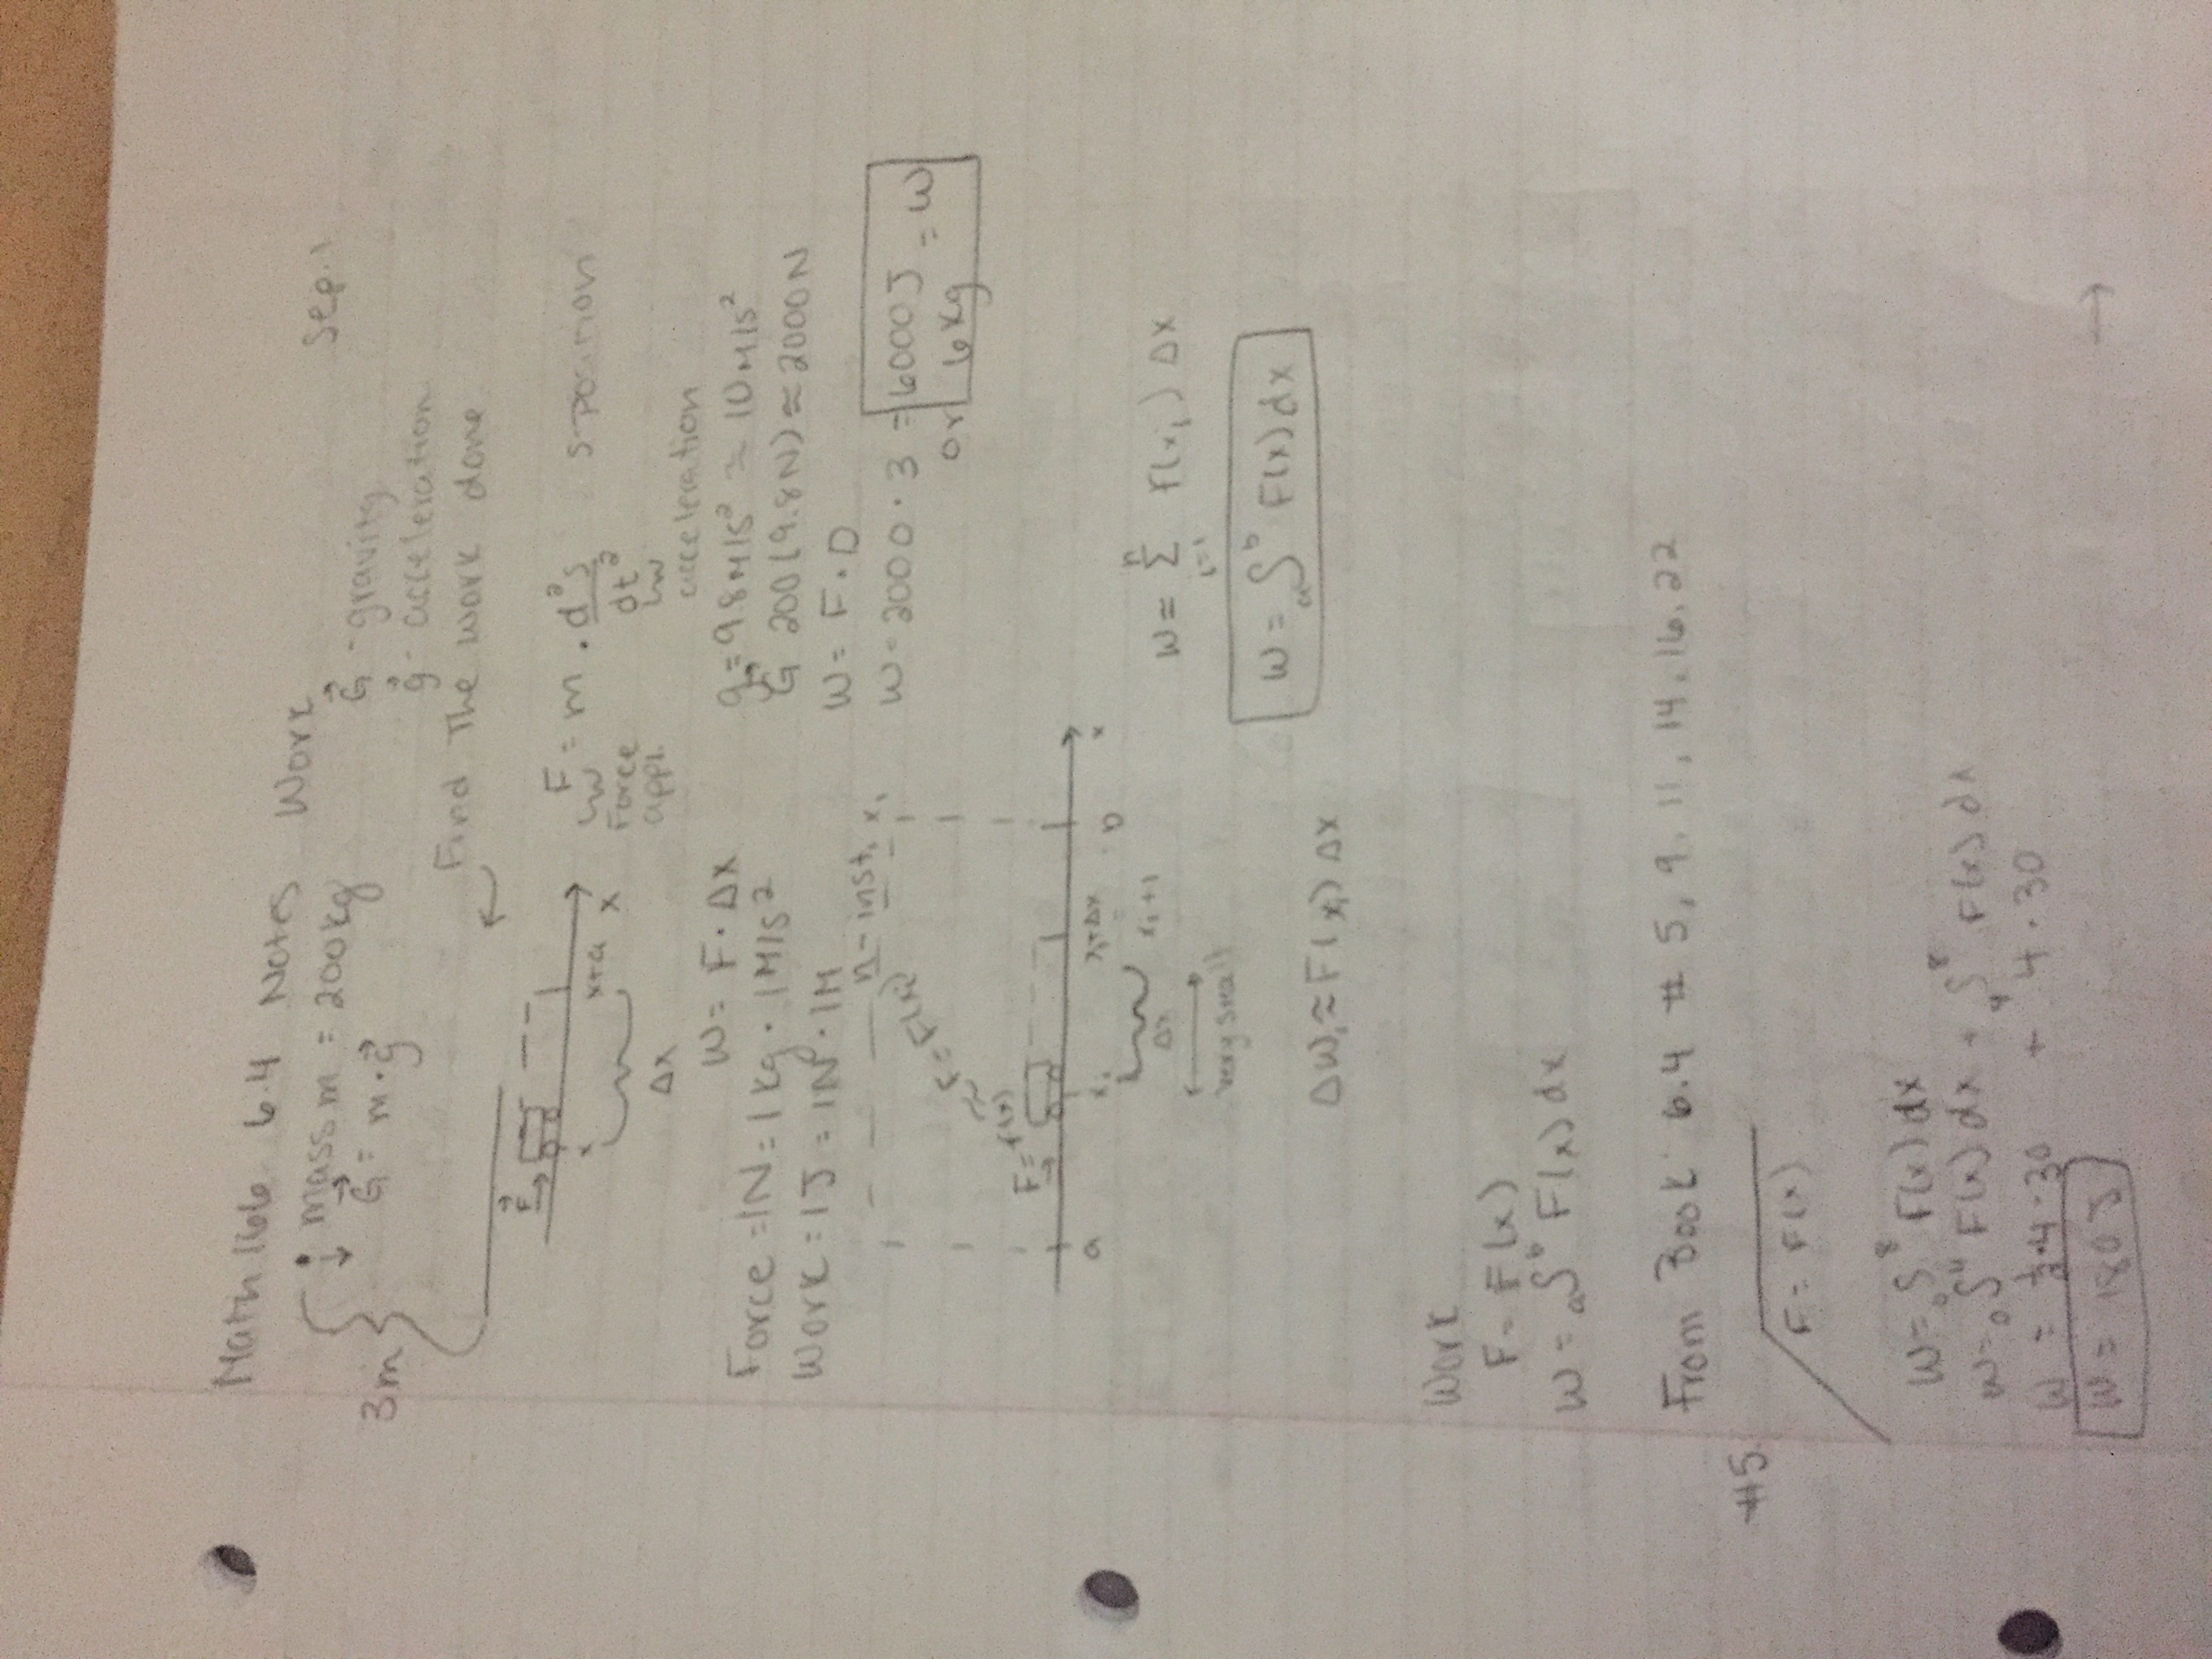 Math 166 6.4 Notes Work Sep. 1
mass m = 200kg
3m
G⃗ = m·g⃗
G⃗ - gravity
g⃗ - acceleration
Find The work done
F⃗
x x+a x
Δx
F = m · d²s/dt² s-position
Force appl.
acceleration
W = F · Δx
Force = 1N = 1kg · 1M/s²
Work = 1J = 1N · 1M
g = 9.8M/s² ≈ 10M/s²
G⃗ 200(9.8N) ≈ 2000N
W = F · D
W = 2000 · 3 = 6000J = W
or 6kg
n - inst.
F = F(x)
a xᵢ xᵢ+Δx b x
Δx xᵢ+1
very small
W = Σ i=1 n F(xᵢ) Δx
W = a∫b F(x)dx
ΔWᵢ ≈ F(xᵢ) Δx
Work
F = F(x)
W = a∫b F(x)dx
From Book 6.4 # 5, 9, 11, 14, 16, 22
#5
F = F(x)
W = 0∫8 F(x)dx
W = 0∫4 F(x)dx + 4∫8 F(x)dx
W = ½·4·30 + 4·30
W = 180J
→